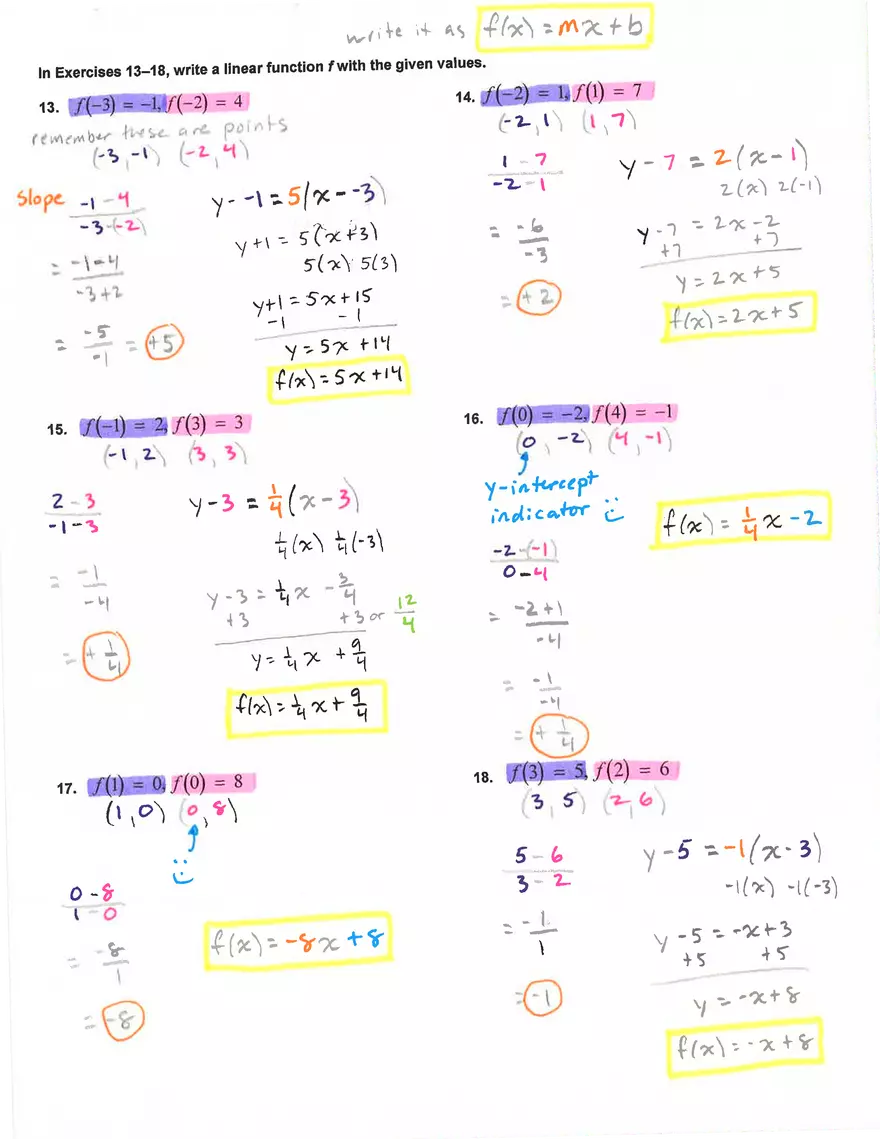 write it as f(x) = mx + b
In Exercises 13–18, write a linear function f with the given values.
13. f(−3) = −1, f(−2) = 4
remember these are points
(-3, -1) (-2, 4)
Slope
-1 - 4
-3-(-2)
= -1-4
-3+2
= -5
-1
= +5
y--1 = 5(x--3)
y+1 = 5(x+3)
5(x) 5(3)
y+1 = 5x+15
-1 -1
y = 5x +14
f(x) = 5x +14
14. f(−2) = 1, f(1) = 7
(-2, 1) (1, 7)
1 - 7
-2 - 1
= -6
-3
= +2
y - 7 = 2(x-1)
2(x) 2(-1)
y-7 = 2x-2
+7 +7
y = 2x+5
f(x) = 2x+5
15. f(−1) = 2, f(3) = 3
(-1, 2) (3, 3)
2 - 3
-1 - 3
= -1
-4
= + 1
4
y-3 = 1/4 (x-3)
1/4(x) 1/4(-3)
y-3 = 1/4x - 3/4
+3 +3 or 12/4
y = 1/4 x + 9/4
f(x) = 1/4 x + 9/4
16. f(0) = −2, f(4) = −1
(0, -2) (4, -1)
y-intercept
indicator
-2-(-1)
0-4
= -2+1
-4
= -1
-4
= + 1
4
f(x) = 1/4 x -2
17. f(1) = 0, f(0) = 8
(1, 0) (0, 8)
0-8
1-0
= -8
1
= -8
f(x) = -8x +8
18. f(3) = 5, f(2) = 6
(3, 5) (2, 6)
5 - 6
3 - 2
= -1
1
= -1
y-5 = -1(x-3)
-1(x) -1(-3)
y-5 = -x+3
+5 +5
y = -x+8
f(x) = -x+8